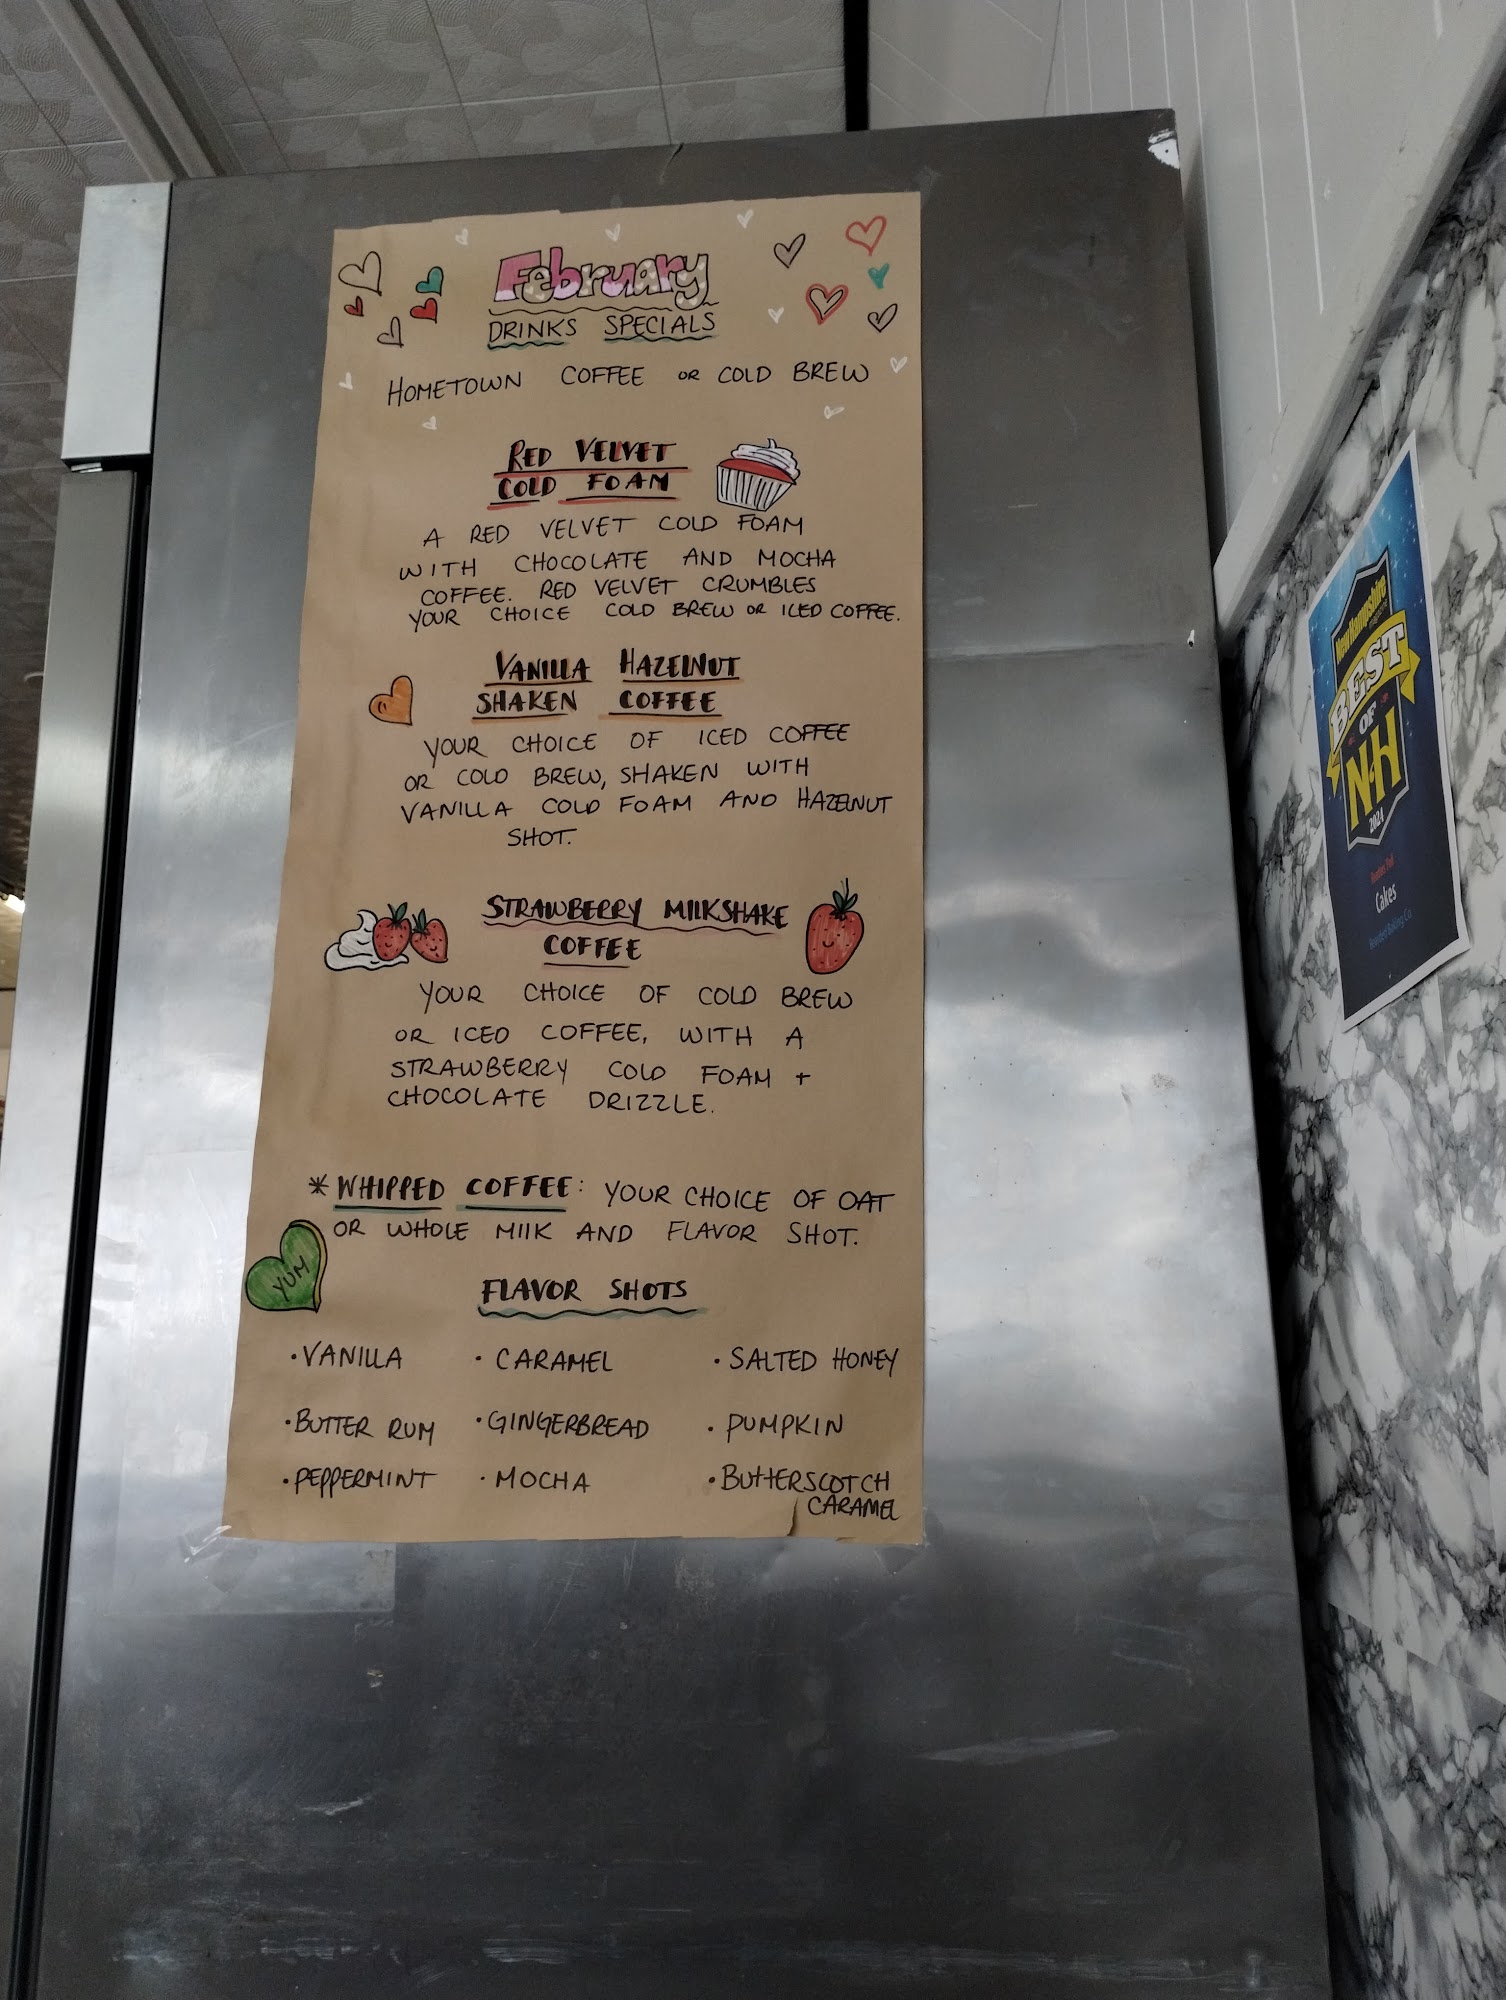 February
DRINKS SPECIALS
HOMETOWN COFFEE OR COLD BREW
RED VELVET
COLD FOAM
A RED VELVET COLD FOAM
WITH CHOCOLATE AND MOCHA
COFFEE. RED VELVET CRUMBLES
YOUR CHOICE COLD BREW OR ICED COFFEE.
VANILLA HAZELNUT
SHAKEN COFFEE
YOUR CHOICE OF ICED COFFEE
OR COLD BREW, SHAKEN WITH
VANILLA COLD FOAM AND HAZELNUT
SHOT.
STRAWBERRY MILKSHAKE
COFFEE
YOUR CHOICE OF COLD BREW
OR ICED COFFEE, WITH A
STRAWBERRY COLD FOAM +
CHOCOLATE DRIZZLE.
* WHIPPED COFFEE: YOUR CHOICE OF OAT
OR WHOLE MILK AND FLAVOR SHOT.
YUM
FLAVOR SHOTS
• VANILLA • CARAMEL • SALTED HONEY
• BUTTER RUM • GINGERBREAD • PUMPKIN
• PEPPERMINT • MOCHA • BUTTERSCOTCH
CARAMEL
New Hampshire
BEST
OF
NH
2024
Readers' Poll
Cakes
Bearded Baking Co.